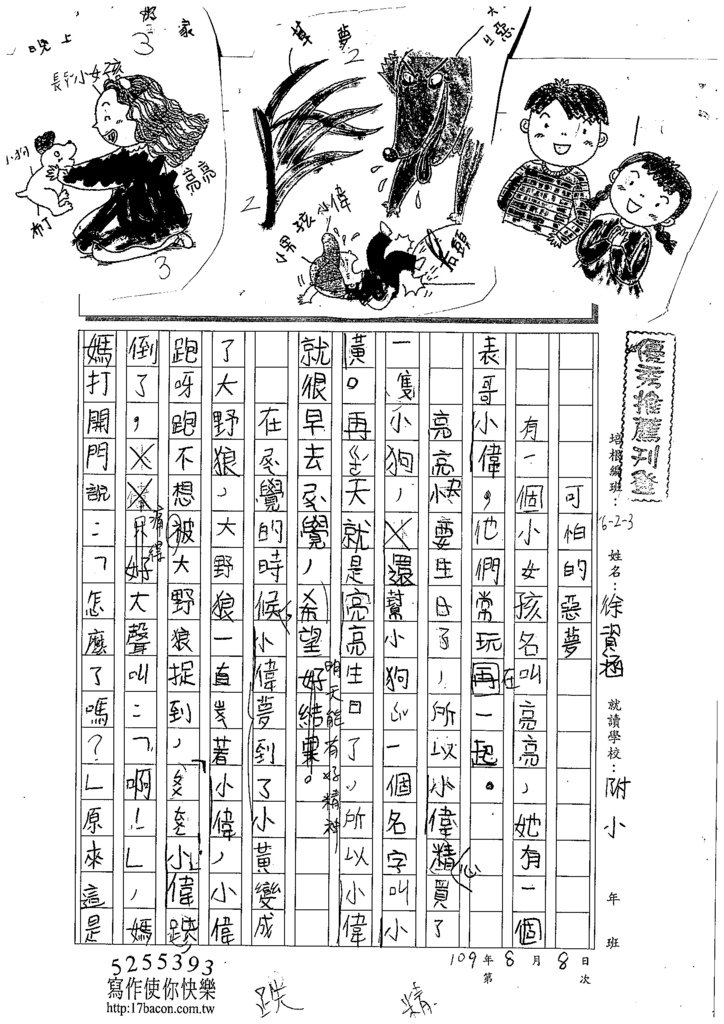 晚上
3
家
長髮小女孩
小狗
亮亮
布丁
3
草
夢
2
惡
2
男孩小偉
石頭
優秀推薦刊登
培根編班：
6-2-3
姓名：徐資涵
就讀學校：附小
年
班
可怕的惡夢
有一個小女孩名叫亮亮，她有一個
表哥小偉，他們常玩再一起。
在
亮亮快要生日了，所以小偉精買了
心
一隻小狗，還幫小狗心一個名字叫小
黃。再ㄍㄜˊ天就是亮亮生日了，所以小偉
就很早去ㄕㄨㄟˋ覺，希望好結果。
明天能有好精神
在ㄕㄨㄟˋ覺的時候，小偉夢到了小黃變成
了大野狼，大野狼一直ㄓㄨㄟ著小偉，小偉
跑呀跑不想被大野狼捉到，小偉跌
倒了，只好大聲叫：「啊！」，媽
痛得
媽打開門說：「怎麼了嗎？」原來這是
109年8月8日
第
次
5255393
寫作使你快樂
http:/17bacon.com.tw
跌
精